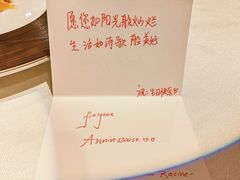 愿您如阳光般灿烂
生活如诗歌般美好
祝：生日快乐！
Joyeux
Anniversaire
Racine